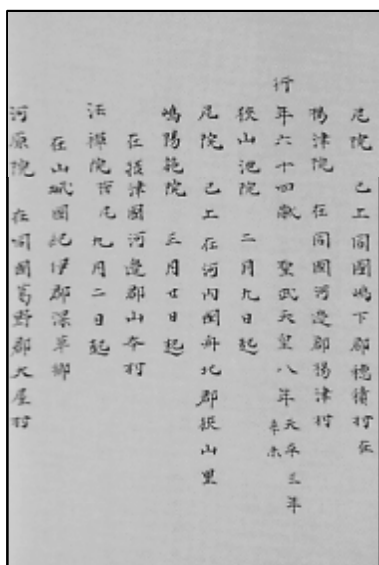 尼院 已上同國嶋下郡穂積村在
楊津院 在同國河邊郡楊津村
行年六十四歳 聖武天皇八年 天平三年
辛未
狹山池院 二月九日起
尼院 已上在河内國丹北郡狹山里
嶋陽施院 三月廿日起
在攝津國河邊郡山本村
法禪院 九月二日起
在山城國紀伊郡深草郷
河原院 在同國葛野郡大屋村